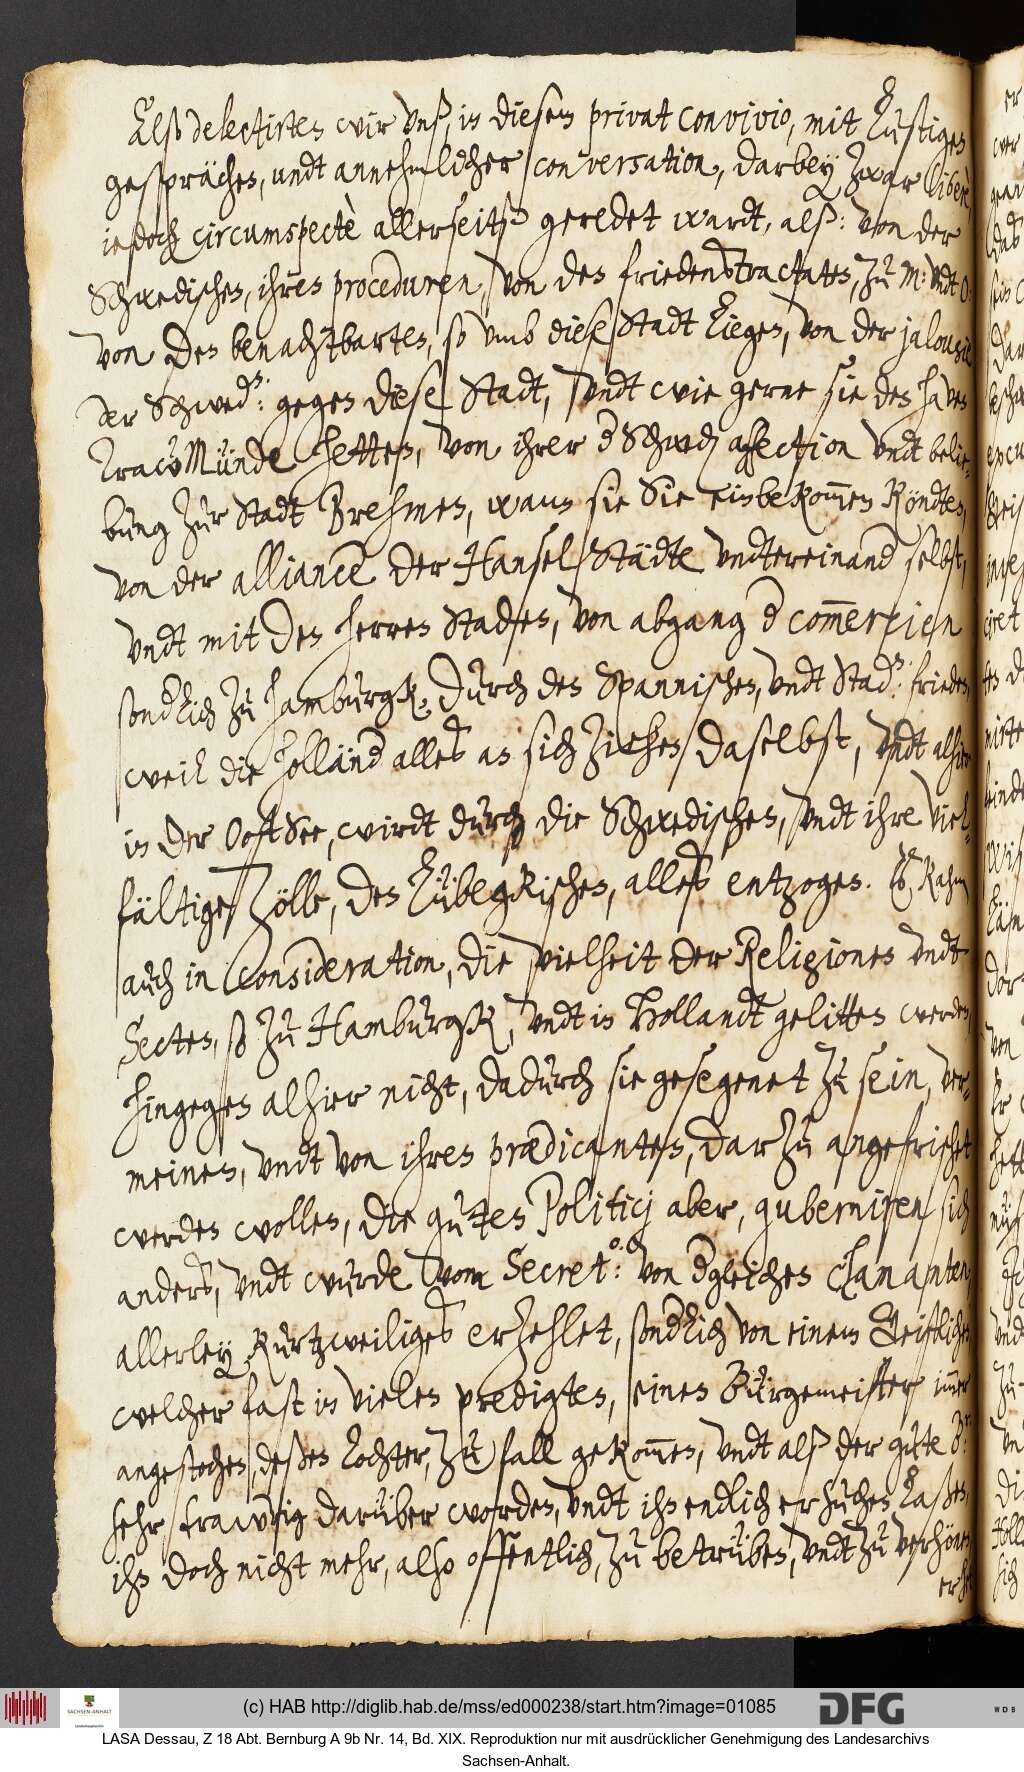 Alß delectirten wir unß, in diesem privat convivio, mit Lustigen
gesprächen, undt annehmlicher conversation, darbey zwar liberè,
iedoch circumspectè allerseits geredet wardt, alß: von der
Schwedischen, ihren proceduren, von den friedenstractaten, zu M: undt O:
von den benachtbarten, so umb diese Stadt liegen, von der jalousie
der Schwed:en gegen diese Stadt, undt wie gerne sie den haven
Travemünde hetten, von ihrer der Schwed: affection undt belie-
bung zur Stadt Brehmen, wann sie Sie einbekommen köndten,
von der alliance der Hansee Städte undtereinand selbst,
undt mit den herren Stadten, von abgang d commercien
sondlich zu hamburgk, durch den Spannischen, undt Stad:en frieden,
weil die holländ alles an sich ziehen, daselbst, undt alhier
in der Oost See, wirdt durch die Schwedischen, undt ihre viel-
fältige Zölle, den Lübegkischen, alles entzogen. Es kahm
auch in consideration, die vielheit der Religionen undt
Secten, so zu Hamburgk, undt in Hollandt gelitten werden,
hingegen alhier nicht, dadurch sie gesegenet zu sein, ver-
meinen, undt von ihren prædicanten, darzu angefrischet
werden wollen, die guten Politicj aber, guberniren sich
anders, undt wurde vom Secret:o von dgleichen
allerley kurtzweiliges erzehlet, sondlich von einem Geistlichen
welcher fast in vielen predigten, einen Bürgemeister immer
angestochen, deßen Tochter, zu fall gekommen, undt alß der gute B:r
sehr trawrig darüber worden, undt ihn endlich ersuchen laßen,
ihn doch nicht mehr, also offentlich, zu betrüben, undt zu verhönen,
er
(c) HAB http://diglib.hab.de/mss/ed000238/start.htm?image=01085
SACHSEN-ANHALT
DFG
WDB
LASA Dessau, Z 18 Abt. Bernburg A 9b Nr. 14, Bd. XIX. Reproduktion nur mit ausdrücklicher Genehmigung des Landesarchivs
Sachsen-Anhalt.